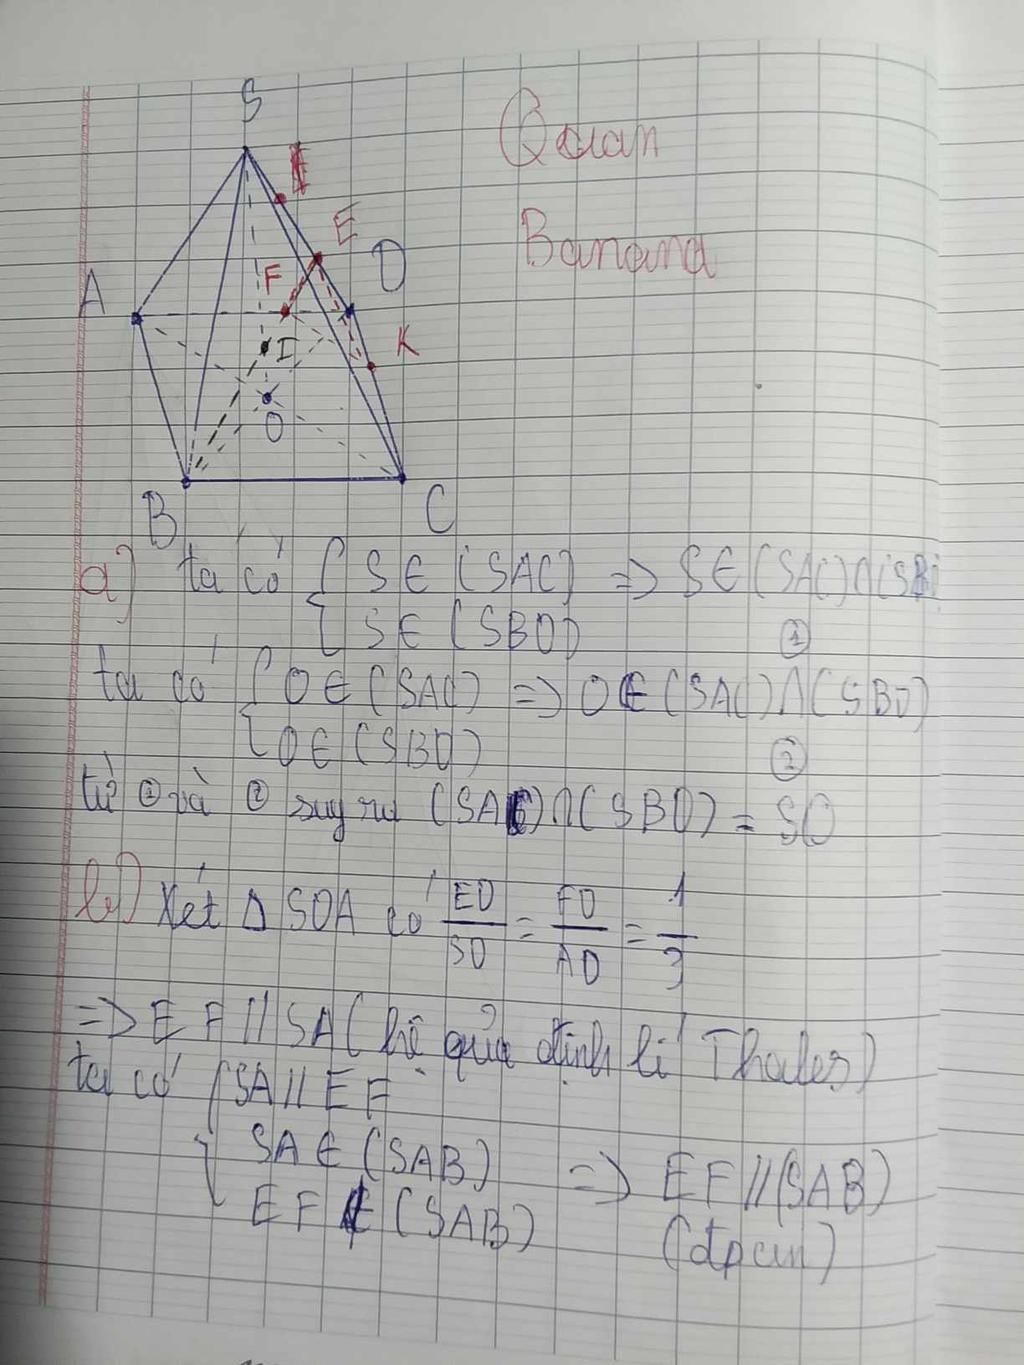 S
Quan
E
D
F
Banana
A
I
K
O
B
C
a) ta có { S ∈ (SAC) => S ∈ (SAC) ∩ (SBD)
{ S ∈ (SBD) ①
ta có { O ∈ (SAC) => O ∈ (SAC) ∩ (SBD)
{ O ∈ (SBD) ②
từ ① và ② suy ra (SAC) ∩ (SBD) = SO
b) Xét Δ SDA có ED/SD = FD/AD = 1/3
=> EF // SA (hệ quả định lí Thales)
ta có { SA // EF
SA ∈ (SAB) => EF // (SAB)
EF ∉ (SAB) (đpcm)